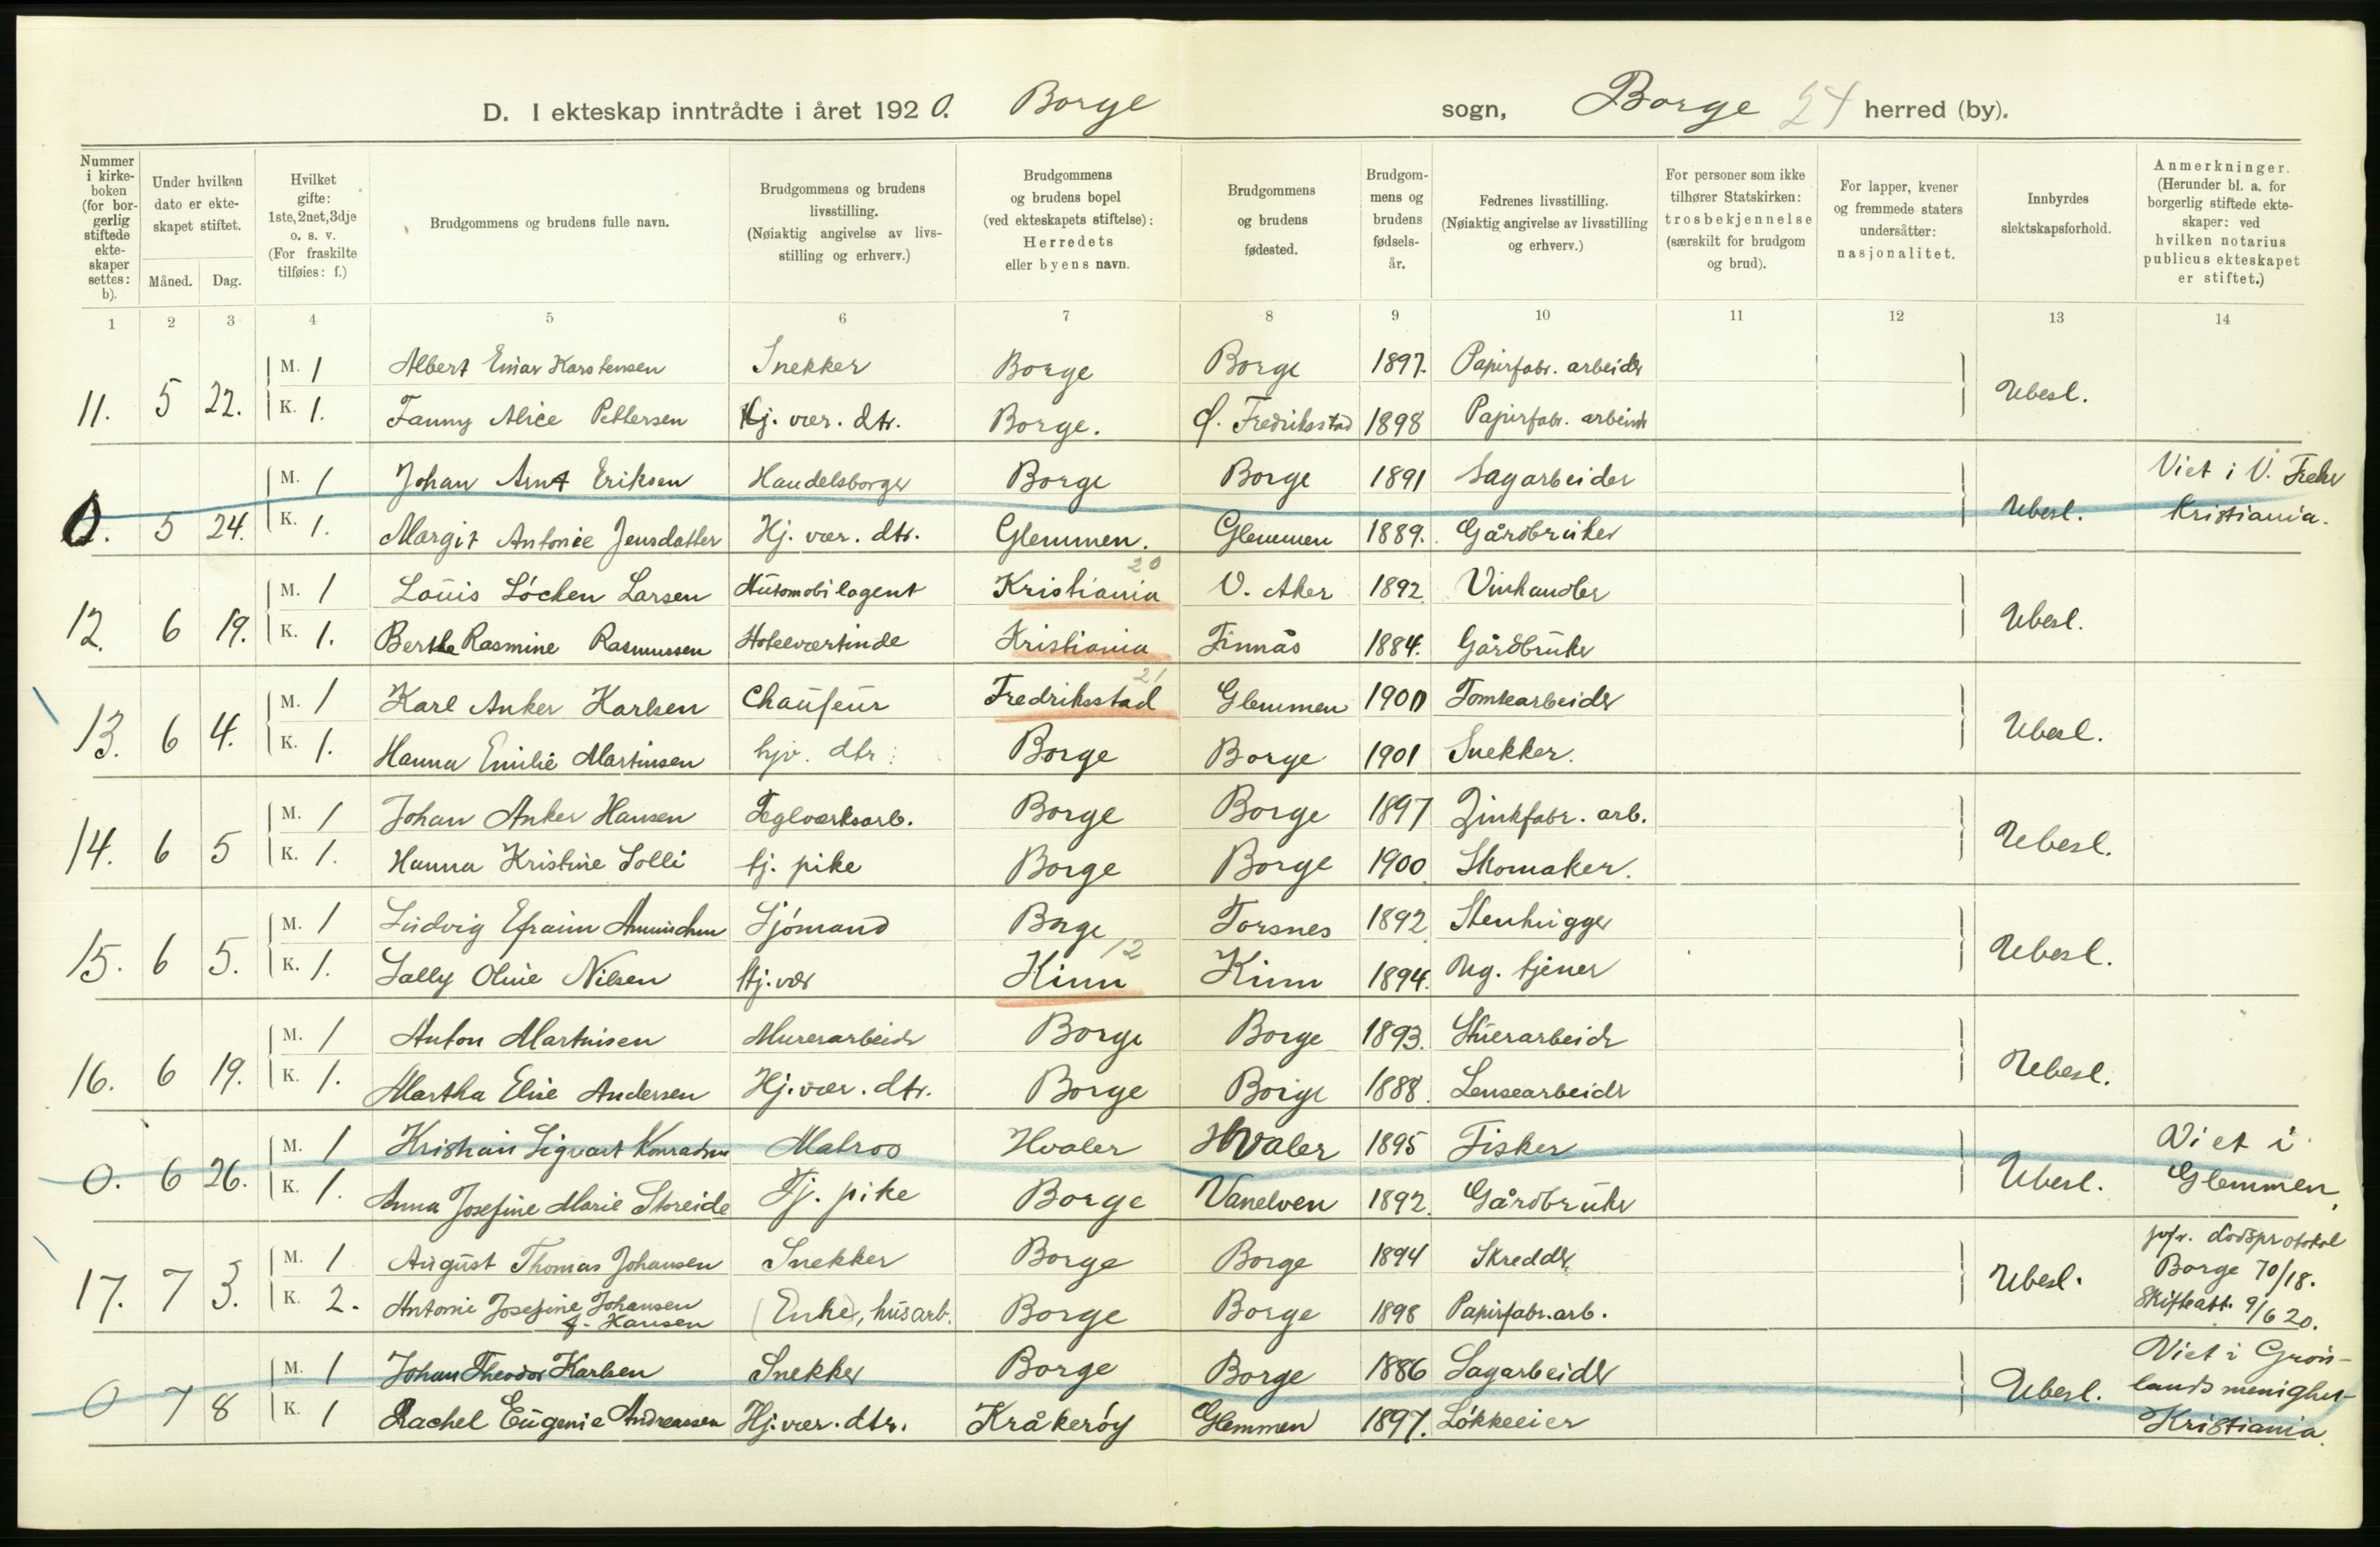 D. I ekteskap inntrådte i året 1920. Borge sogn, Borge 24 herred (by).
Nummer i kirkeboken (for borgerlig stiftede ekteskaper settes: b).
Under hvilken dato er ekteskapet stiftet.
Måned. Dag.
Hvilket gifte: 1ste, 2net, 3dje o. s. v. (For fraskilte tilføies: f.)
Brudgommens og brudens fulle navn.
Brudgommens og brudens livsstilling. (Nøiaktig angivelse av livsstilling og erhverv.)
Brudgommens og brudens bopel (ved ekteskapets stiftelse): Herredets eller byens navn.
Brudgommens og brudens fødested.
Brudgommens og brudens fødselsår.
Fedrenes livsstilling. (Nøiaktig angivelse av livsstilling og erhverv.)
For personer som ikke tilhører Statskirken: trosbekjennelse (særskilt for brudgom og brud).
For lapper, kvener og fremmede staters undersåtter: nasjonalitet.
Innbyrdes slektskapsforhold.
Anmerkninger. (Herunder bl. a. for borgerlig stiftede ekteskaper: ved hvilken notarius publicus ekteskapet er stiftet.)
1 2 3 4 5 6 7 8 9 10 11 12 13 14
M. 1 Albert Einar Karstensen Snekker Borge Borge 1897. Papirfabr. arbeider
11. 5 22. Ubesl.
K. 1. Fanny Alice Pettersen Hj. vær. dtr. Borge. Fredriksstad 1898 Papirfabr. arbeider
M. 1 Johan Arnt Eriksen Handelsborger Borge Borge 1891 Sagarbeider Viet i V. Freker
0. 5 24. Ubesl. Kristiania.
K. 1. Margit Antonie Jensdatter Hj. vær. dtr. Glemmen. Glemmen 1889. Gårdbruker
M. 1 Louis Löchen Larsen Automobilagent Kristiania 20 V. Aker 1892 Vinhandler
12. 6 19. Ubesl.
K. 1. Berthe Rasmine Rasmussen Hotelværtinde Kristiania Finnås 1884. Gårdbruker
M. 1 Karl Anker Karlsen Chaufeur Fredriksstad 21 Glemmen 1900 Tomtearbeider
13. 6 4. Ubesl.
K. 1. Hanna Emilie Martinsen hjv. dtr. Borge Borge 1901 Snekker.
M. 1 Johan Anker Hansen Teglværksarb. Borge Borge 1897 Zinkfabr. arb.
14. 6 5 Ubesl.
K. 1. Hanna Kristine Solli tj. pike Borge Borge 1900 Skomaker.
M. 1 Ludvig Efraim Amundsen Sjömand Borge Torsnes 1892 Stenhugger
15. 6 5. Ubesl.
K. 1. Sally Oline Nilsen Hj. vær Kinn 12 Kinn 1894. Ng. tjener
M. 1 Anton Martinsen Murerarbeider Borge Borge 1893. Stuerarbeider
16. 6 19. Ubesl.
K. 1. Martha Elise Andersen Hj. vær. dtr. Borge Borge 1888. Lensearbeider
M. 1 Kristian Sigvart Konradsen Matros Hvaler Hvaler 1895 Fisker Viet i
0. 6 26. Ubesl. Glemmen
K. 1. Anna Josefine Marie Storeide Tj. pike Borge Vanelven 1892. Gårdbruker
M. 1 August Thomas Johansen Snekker Borge Borge 1894 Skredder jvfr. dødsprotokol
17. 7 3. Ubesl. Borge 70/18.
K. 2. Antonie Josefine Johansen f. Hansen (Enke), husarb. Borge Borge 1898 Papirfabr. arb. Skifteatt. 9/6 20.
M. 1 Johan Theodor Karlsen Snekker Borge Borge 1886 Sagarbeider Viet i Grön-
0 7 8 Ubesl. lands menighet
K. 1 Rachel Eugenie Andreassen Hj. vær. dtr. Kråkeröy Glemmen 1897. Lökkeeier Kristiania.